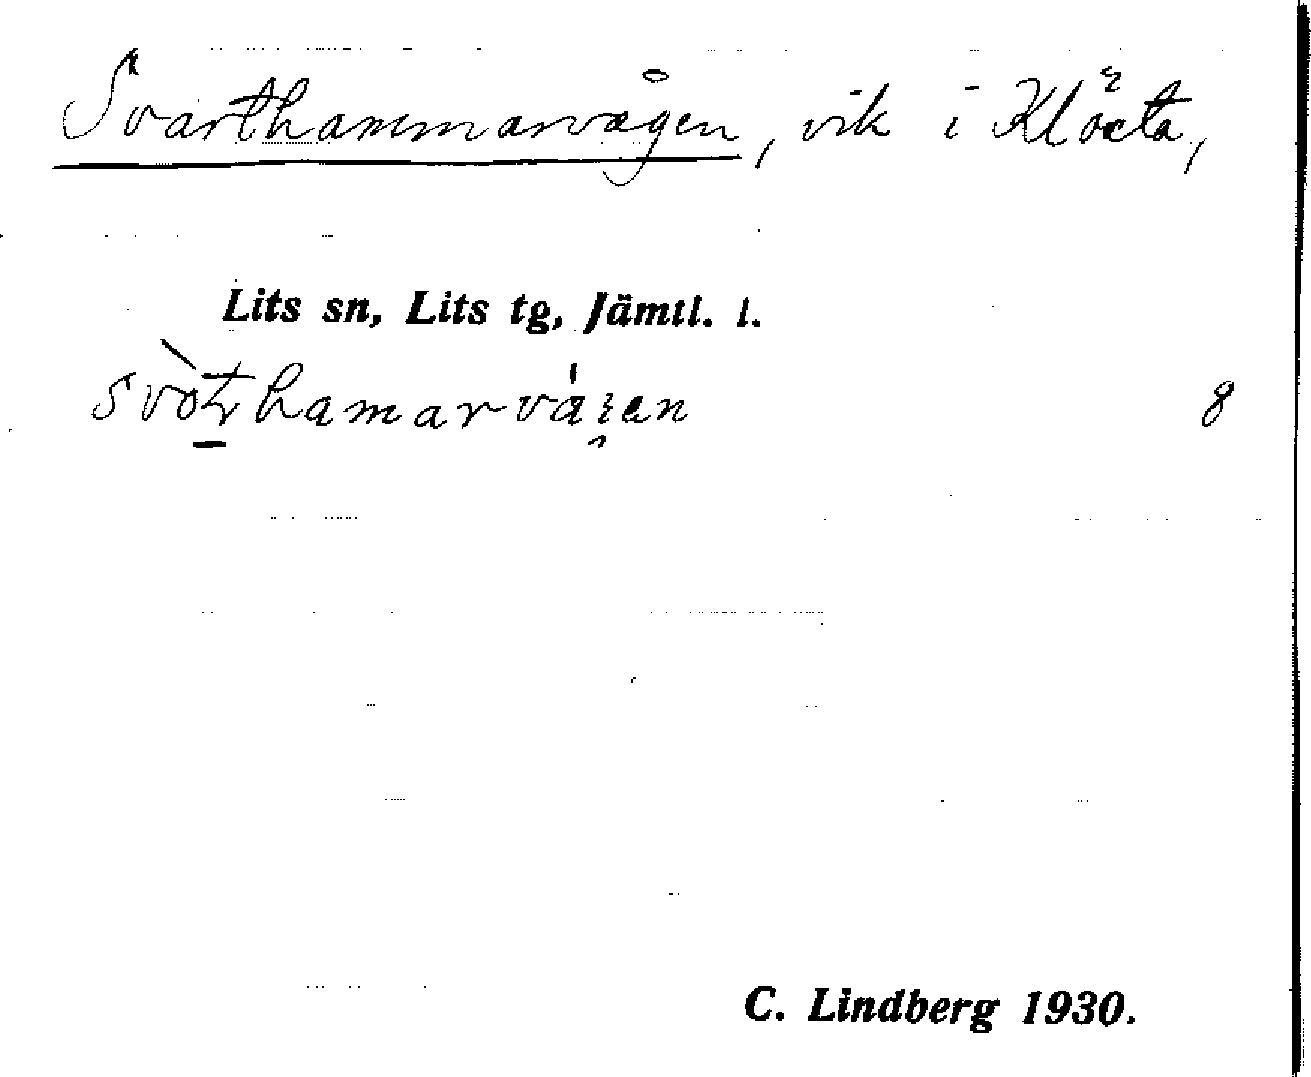 Svarthammarvågen, vik i Klöxta,
Lits sn, Lits tg, Jämtl. l.
8
C. Lindberg 1930.